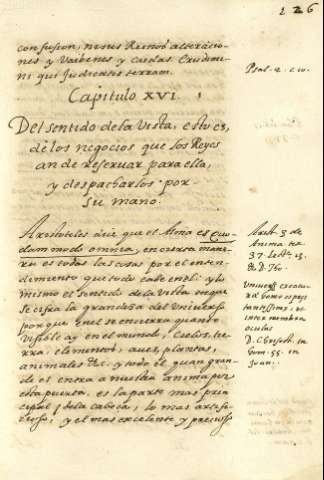 226
confusion, ni sus Reinos alteracio-
nes y Vaibenes y Caidas Erudimi-
ni qui Judicatis terram.
Psal. 2. c. 10.
Capitulo XVI.
Del sentido de la Vista, esto es,
de los negocios que los Reyes
an de reservar para ella,
y despacharlos por
su mano.
Aristoteles dice que el Alma es quo-
dammodo omnia, en cierta mane-
ra es todas las cosas por el enten-
dimiento que todo cabe en el: y lo
mismo el sentido de la vista
se cifra la grandeza del Universo
porque en el se encierra quanto
visible ay en el mundo, Cielos, tie-
rra, elementos, aues, plantas,
animales &c. y todo el quan gran-
de es entra a nuestra anima por
esta puerta, es la parte mas prin-
cipal de la cabeça, lo mas artifi-
cioso, y el mas excelente y precioso
Arist. 3 de
Anima tex
37.
D. Chrysost. in
hom. 55. in
Joan.